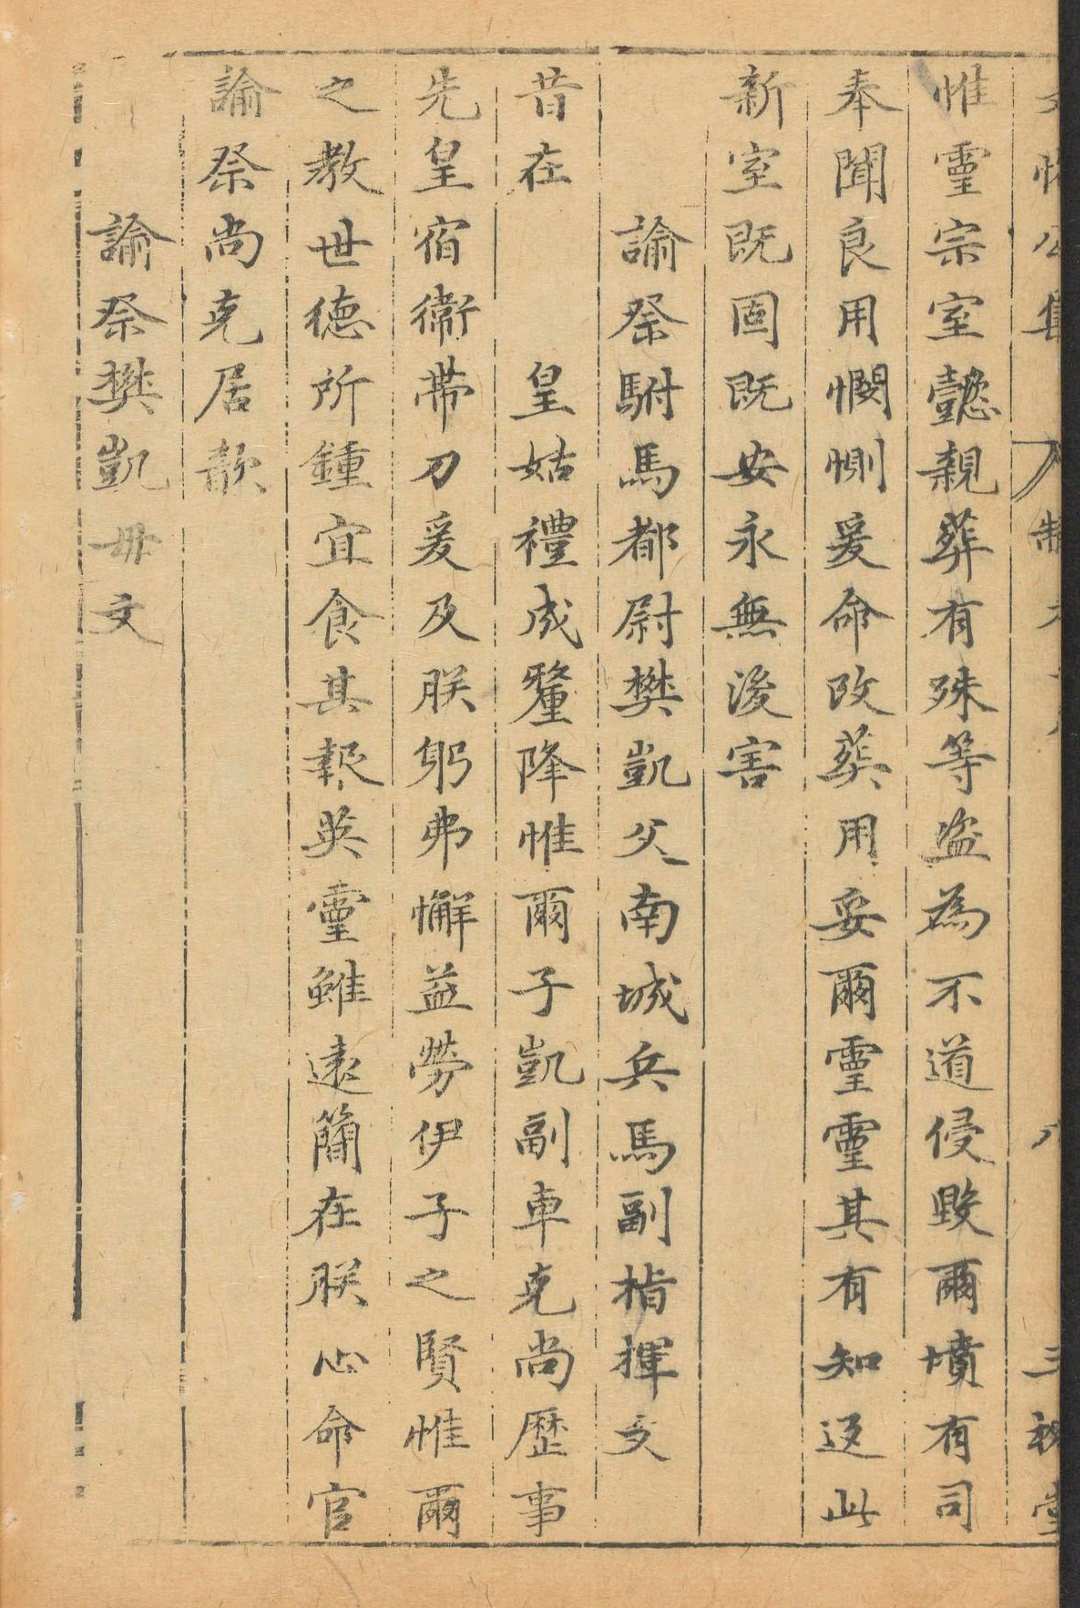 惟靈宗室懿親葬有殊等盗為不道侵毀爾墳有司
奉聞良用憫惻爰命改葬用妥爾靈靈其有知逆此
新室既固既安永無後害
諭祭駙馬都尉樊凱父南城兵馬副指揮文
昔在 皇姑禮成釐降惟爾子凱副車克尚歷事
先皇宿衛帶刀爰及朕躬弗懈益勞伊子之賢惟爾
之教世德所鍾宜食其報英靈雖遠簡在朕心命官
諭祭尚克居歆
諭祭樊凱母文